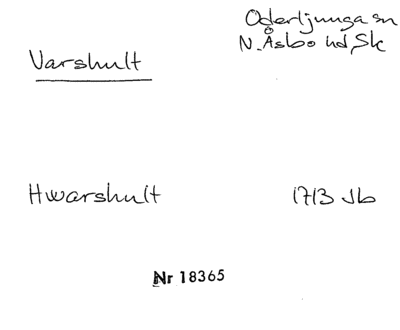 Oderljunga sn
N. Åsbo hd, Sk
Varshult
Hwarshult 1713 Jb
Nr 18365